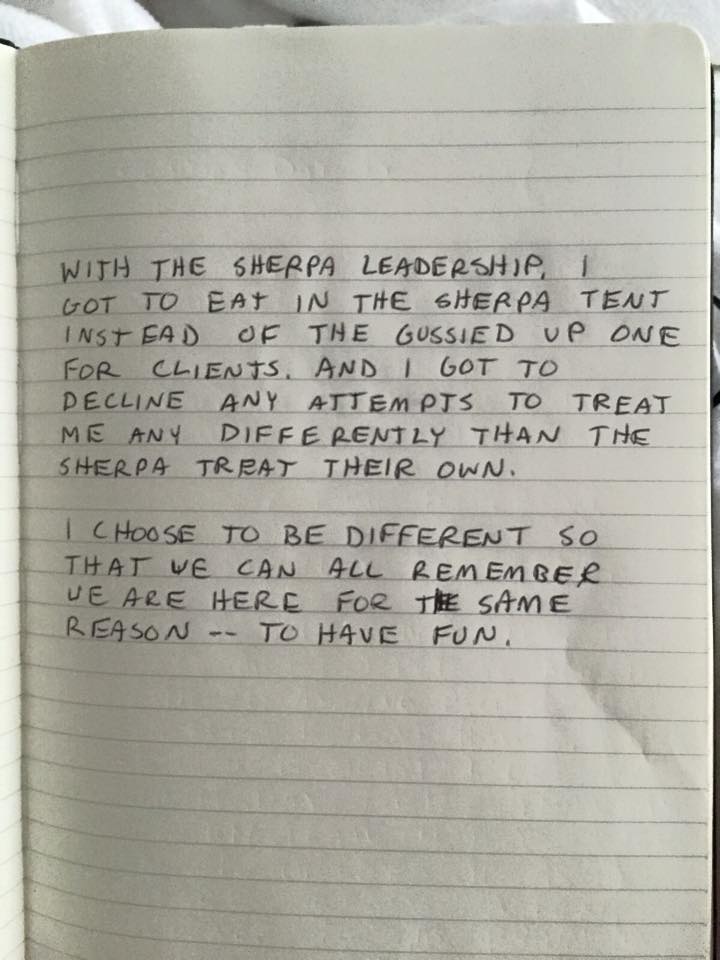 WITH THE SHERPA LEADERSHIP, I
GOT TO EAT IN THE SHERPA TENT
INSTEAD OF THE GUSSIED UP ONE
FOR CLIENTS. AND I GOT TO
DECLINE ANY ATTEMPTS TO TREAT
ME ANY DIFFERENTLY THAN THE
SHERPA TREAT THEIR OWN.
I CHOOSE TO BE DIFFERENT SO
THAT WE CAN ALL REMEMBER
WE ARE HERE FOR THE SAME
REASON -- TO HAVE FUN.